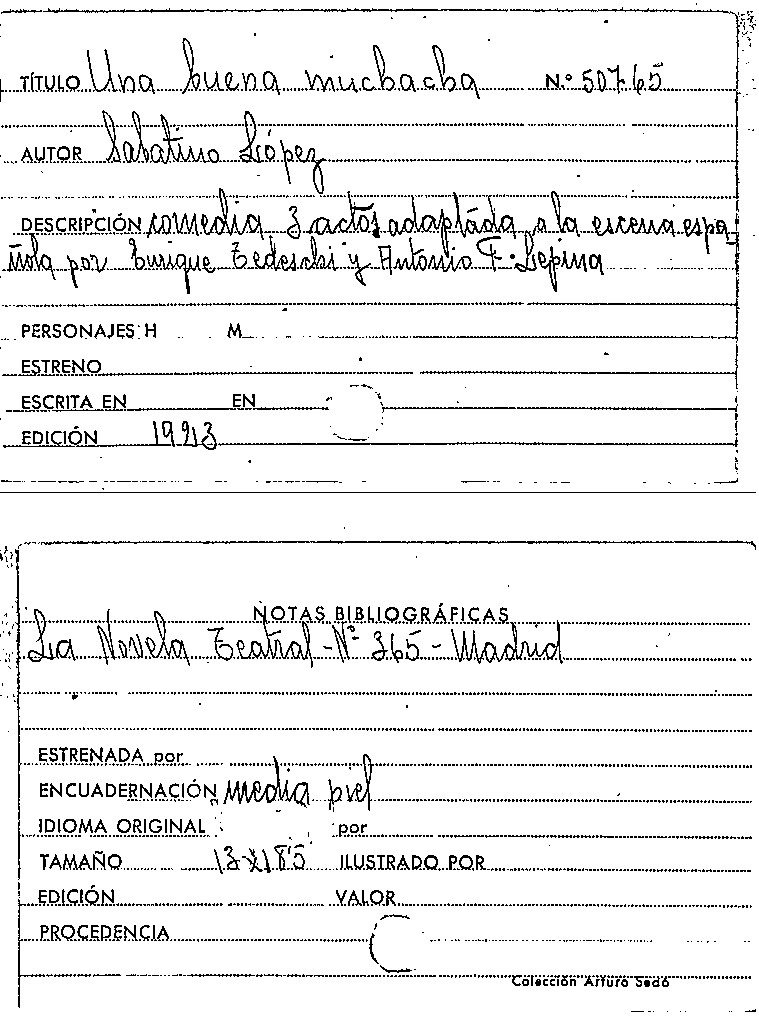 TÍTULO Una buena muchacha N.º 507-65
AUTOR Sabatino López
DESCRIPCIÓN comedia 3 actos adaptada a la escena espa-
ñola por Enrique Tedeschi y Antonio F. Lepina
PERSONAJES H M
ESTRENO
ESCRITA EN EN
EDICIÓN 1923
NOTAS BIBLIOGRÁFICAS
La Novela Teatral - Nº 365 - Madrid
ESTRENADA por
ENCUADERNACIÓN media piel
IDIOMA ORIGINAL por
TAMAÑO ILUSTRADO POR
EDICIÓN VALOR
PROCEDENCIA
Colección Arturo Sedó